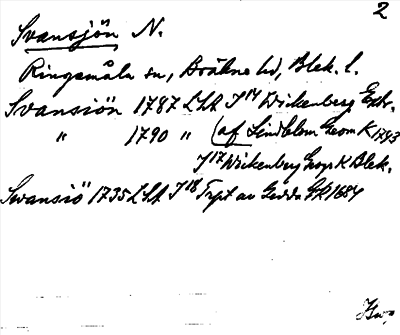 2
Svansjön N.
Ringamåla sn, Bräkne hd, Blek. l.
Svansiön 1787 LSA I 14 Wickenberg Extr.
" 1790 " (af Lindblom Geom K 1793
I 17 Wickenberg Geogr K Blek.
Swansiö 1735 LSA I 18 Trpt av Gedda GK 1684